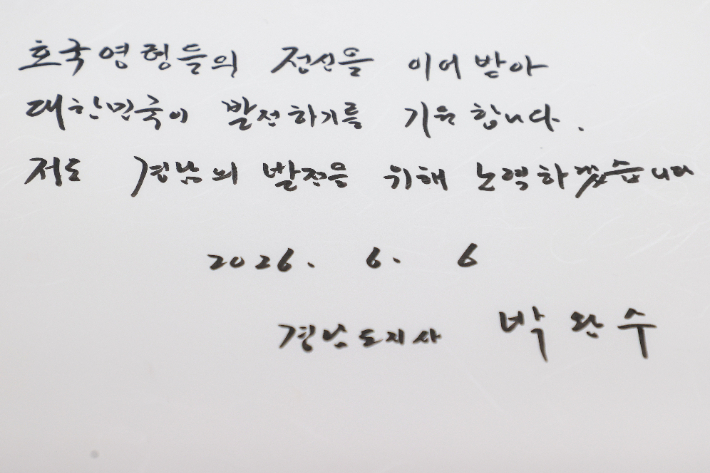 호국영령들의 정신을 이어받아
대한민국이 발전하기를 기원합니다.
저도 경남의 발전을 위해 노력하겠습니다
2026. 6. 6
경남도지사 박완수